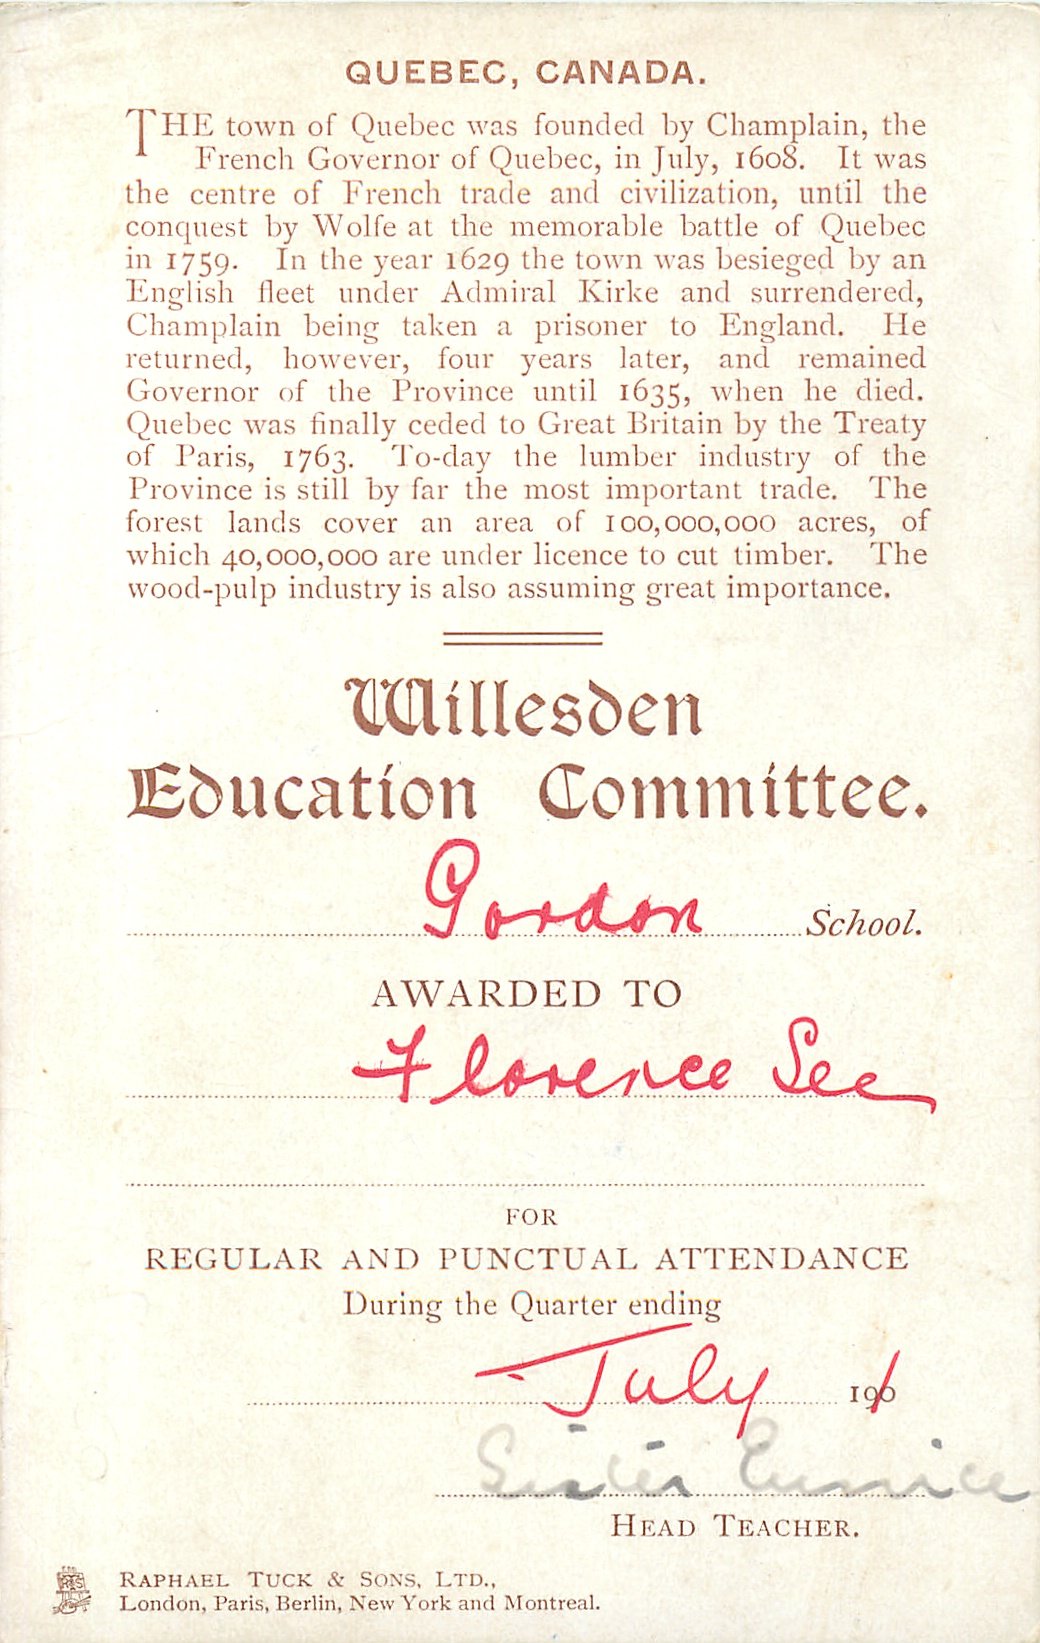 QUEBEC, CANADA.
THE town of Quebec was founded by Champlain, the
French Governor of Quebec, in July, 1608. It was
the centre of French trade and civilization, until the
conquest by Wolfe at the memorable battle of Quebec
in 1759. In the year 1629 the town was besieged by an
English fleet under Admiral Kirke and surrendered,
Champlain being taken a prisoner to England. He
returned, however, four years later, and remained
Governor of the Province until 1635, when he died.
Quebec was finally ceded to Great Britain by the Treaty
of Paris, 1763. To-day the lumber industry of the
Province is still by far the most important trade. The
forest lands cover an area of 100,000,000 acres, of
which 40,000,000 are under licence to cut timber. The
wood-pulp industry is also assuming great importance.
Willesden
Education Committee.
Gordon School.
AWARDED TO
Florence See
FOR
REGULAR AND PUNCTUAL ATTENDANCE
During the Quarter ending
July 191
Sister Eunice
HEAD TEACHER.
RAPHAEL TUCK & SONS, LTD.,
London, Paris, Berlin, New York and Montreal.